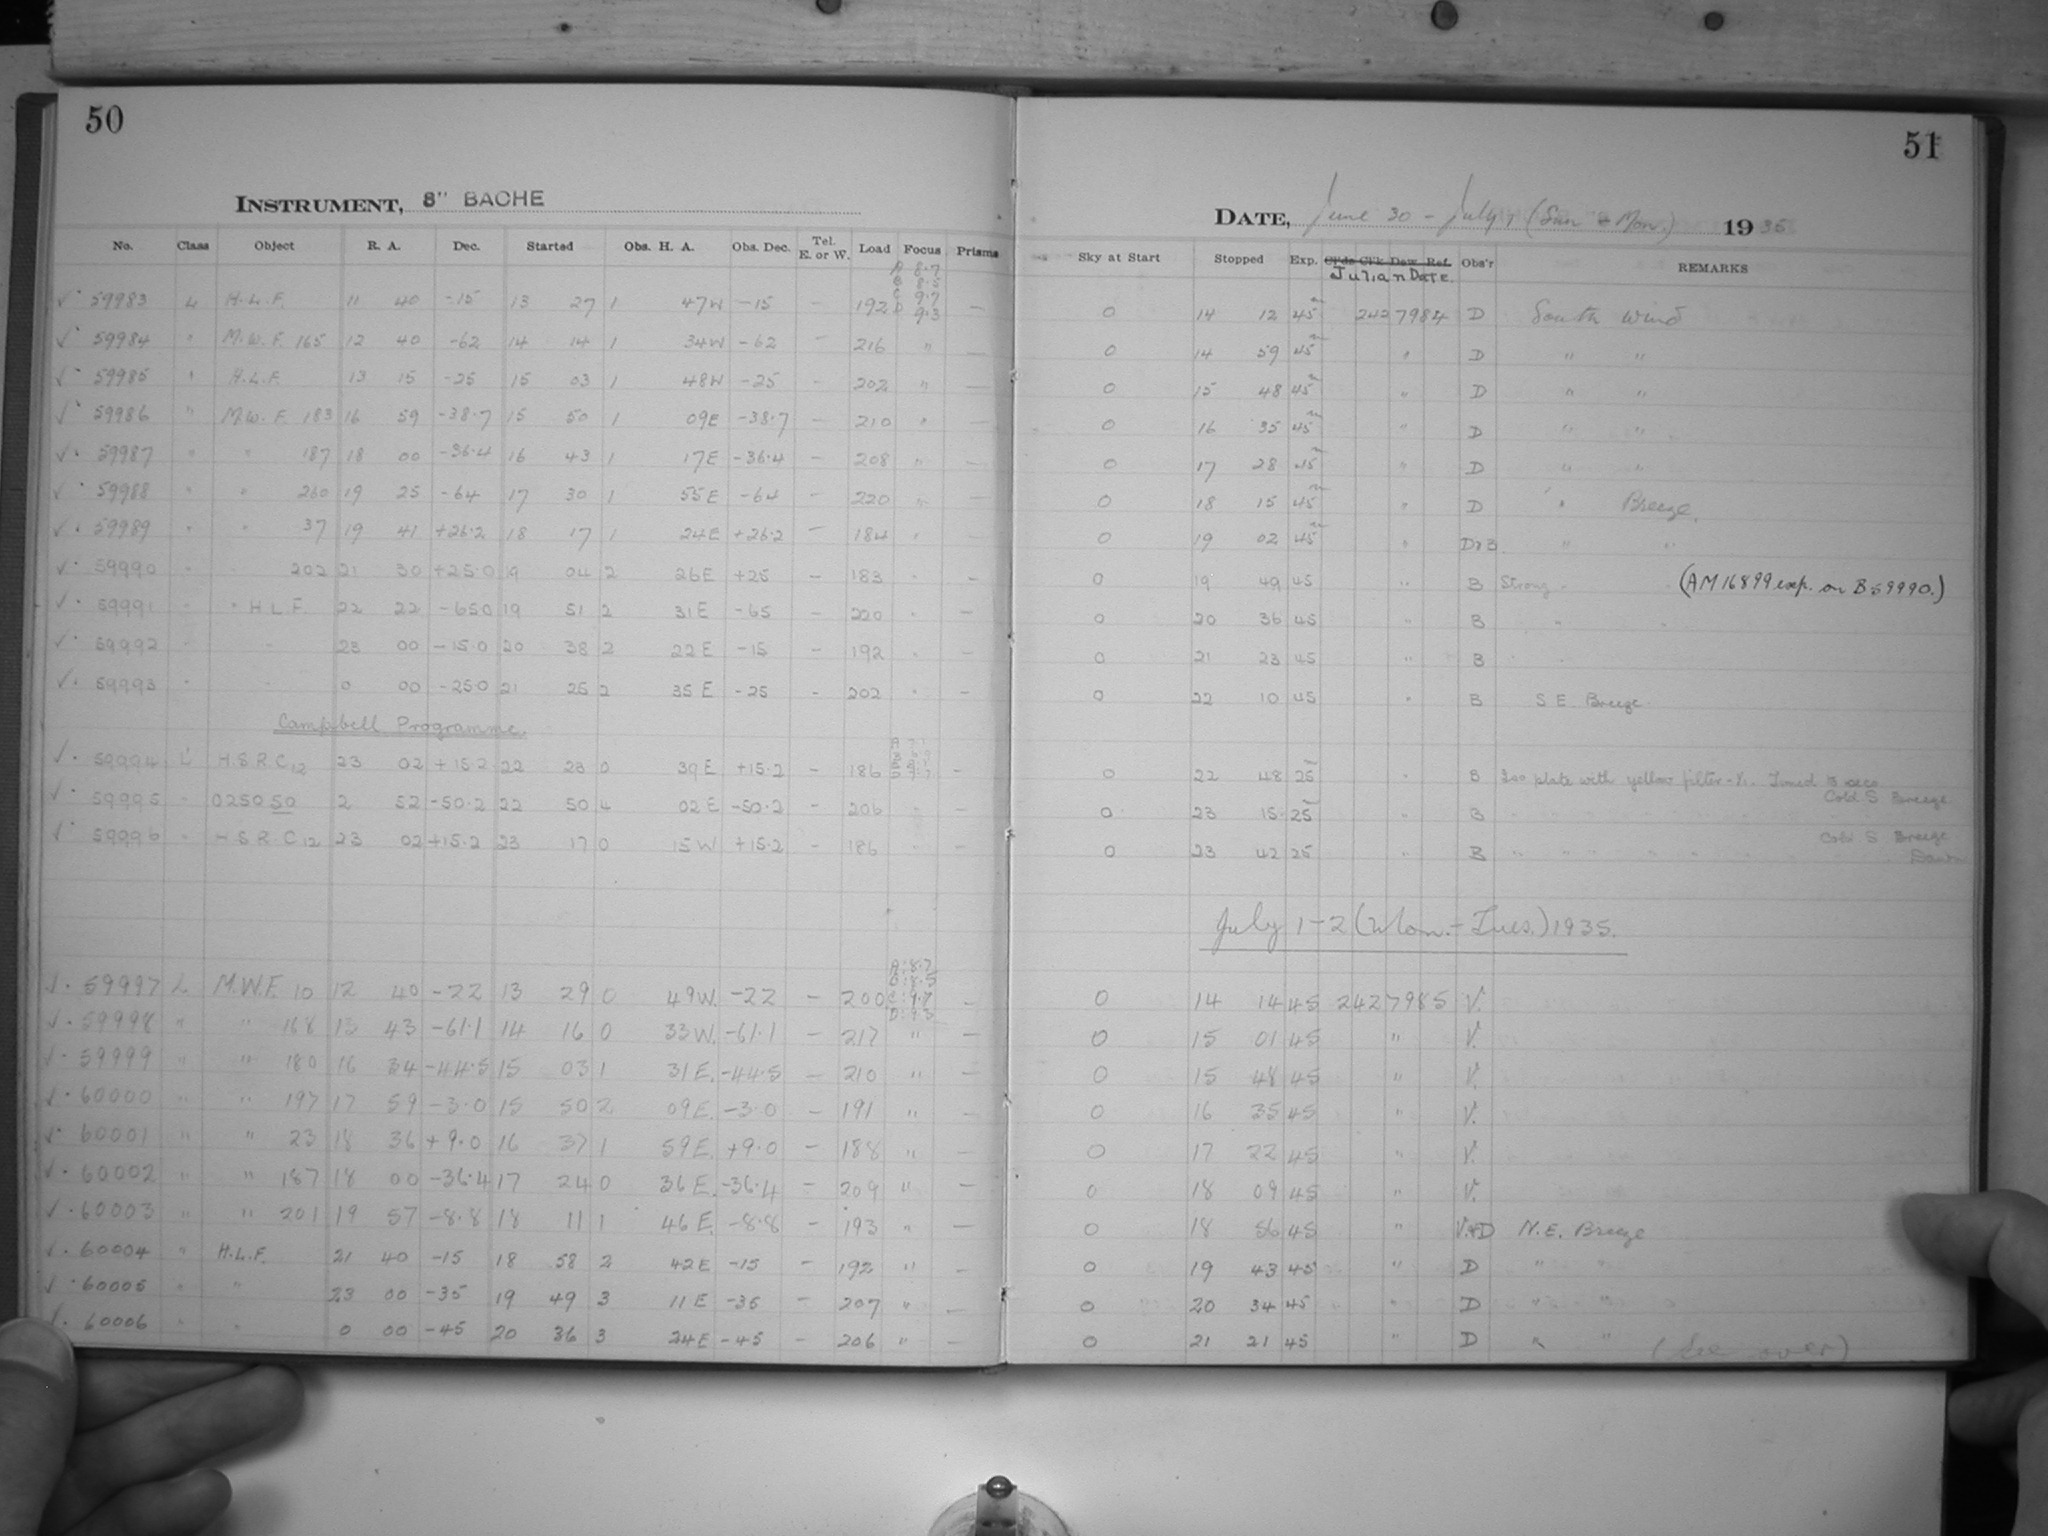 50
INSTRUMENT, 8" BACHE
No. Class Object R. A. Dec. Started Obs. H. A. Obs. Dec. Tel. E. or W. Load Focus Prisms
A 8.7
B 8.5
C 9.7
D 9.3
√ 59983 L H.L.F. 11 40 -15 13 27 1 47W -15 - 192 -
√ 59984 " M.W.F. 165 12 40 -62 14 14 1 34W -62 - 216 " -
√ 59985 " H.L.F. 13 15 -25 15 03 1 48W -25 - 202 " -
√ 59986 " M.W.F. 183 16 59 -38.7 15 50 1 09E -38.7 - 210 " -
√ 59987 " " 187 18 00 -36.4 16 43 1 17E -36.4 - 208 " -
√ 59988 " " 260 19 25 -64 17 30 1 55E -64 - 220 " -
√ 59989 " " 37 19 41 +26.2 18 17 1 24E +26.2 - 184 " -
√ 59990 " " 202 21 30 +25.0 19 04 2 26E +25 - 183 " -
√ 59991 " " H L F. 22 22 -650 19 51 2 31E -65 - 220 " -
√ 59992 " " 23 00 -15.0 20 38 2 22E -15 - 192 " -
√ 59993 " " 0 00 -25.0 21 25 2 35E -25 - 202 " -
Campbell Programme
√ 59994 L H.S.R.C12 23 02 +15.2 22 23 0 39E +15.2 - 186 -
√ 59995 " 025050 2 52 -50.2 22 50 4 02E -50.2 - 206 " -
√ 59996 " H S R. C 12 23 02 +15.2 23 17 0 15W +15.2 - 186 " -
A: 8.7
B: 8.5
C: 9.7
D: 9.3
√ 59997 L M.W.F. 10 12 40 -22 13 29 0 49W. -22 - 200 -
√ 59998 " " 168 13 43 -61.1 14 16 0 33W. -61.1 - 217 " -
√ 59999 " " 180 16 34 -44.5 15 03 1 31E. -44.5 - 210 " -
√ 60000 " " 197 17 59 -3.0 15 50 2 09E. -3.0 - 191 " -
√ 60001 " " 23 18 36 +9.0 16 37 1 59E. +9.0 - 188 " -
√ 60002 " " 187 18 00 -36.4 17 24 0 36E. -36.4 - 209 " -
√ 60003 " " 201 19 57 -8.8 18 11 1 46E. -8.8 - 193 " -
√ 60004 " H.L.F. 21 40 -15 18 58 2 42E -15 - 192 " -
√ 60005 " " 23 00 -35 19 49 3 11E -35 - 207 " -
√ 60006 " " 0 00 -45 20 36 3 24E -45 - 206 " -
51
DATE, June 30 - July 1 (Sun & Mon.) 1935
Sky at Start Stopped Exp. Cl'ds Cl'k Dew Ref. Obs'r REMARKS
Julian Date.
0 14 12 45m 2427984 D South Wind
0 14 59 45m " D " "
0 15 48 45m " D " "
0 16 35 45m " D " "
0 17 28 45m " D " "
0 18 15 45m " D " Breeze.
0 19 02 45m " D&B " "
0 19 49 45 " B Strong " (AM 16899 exp. on B59990.)
0 20 36 45 " B " "
0 21 23 45 " B " "
0 22 10 45 " B S E Breeze
0 22 48 25m " B plate with yellow filter
Cold S Breeze
0 23 15 25m " B
Cold S Breeze
0 23 42 25 " B " " " Dawn
July 1-2 (Mon.-Tues.) 1935.
0 14 14 45 2427985 V.
0 15 01 45 " V.
0 15 48 45 " V.
0 16 35 45 " V.
0 17 22 45 " V.
0 18 09 45 " V.
0 18 56 45 " V.&D N.E. Breeze
0 19 43 45 " D " "
0 20 34 45 " D " "
0 21 21 45 " D " "
(See over)